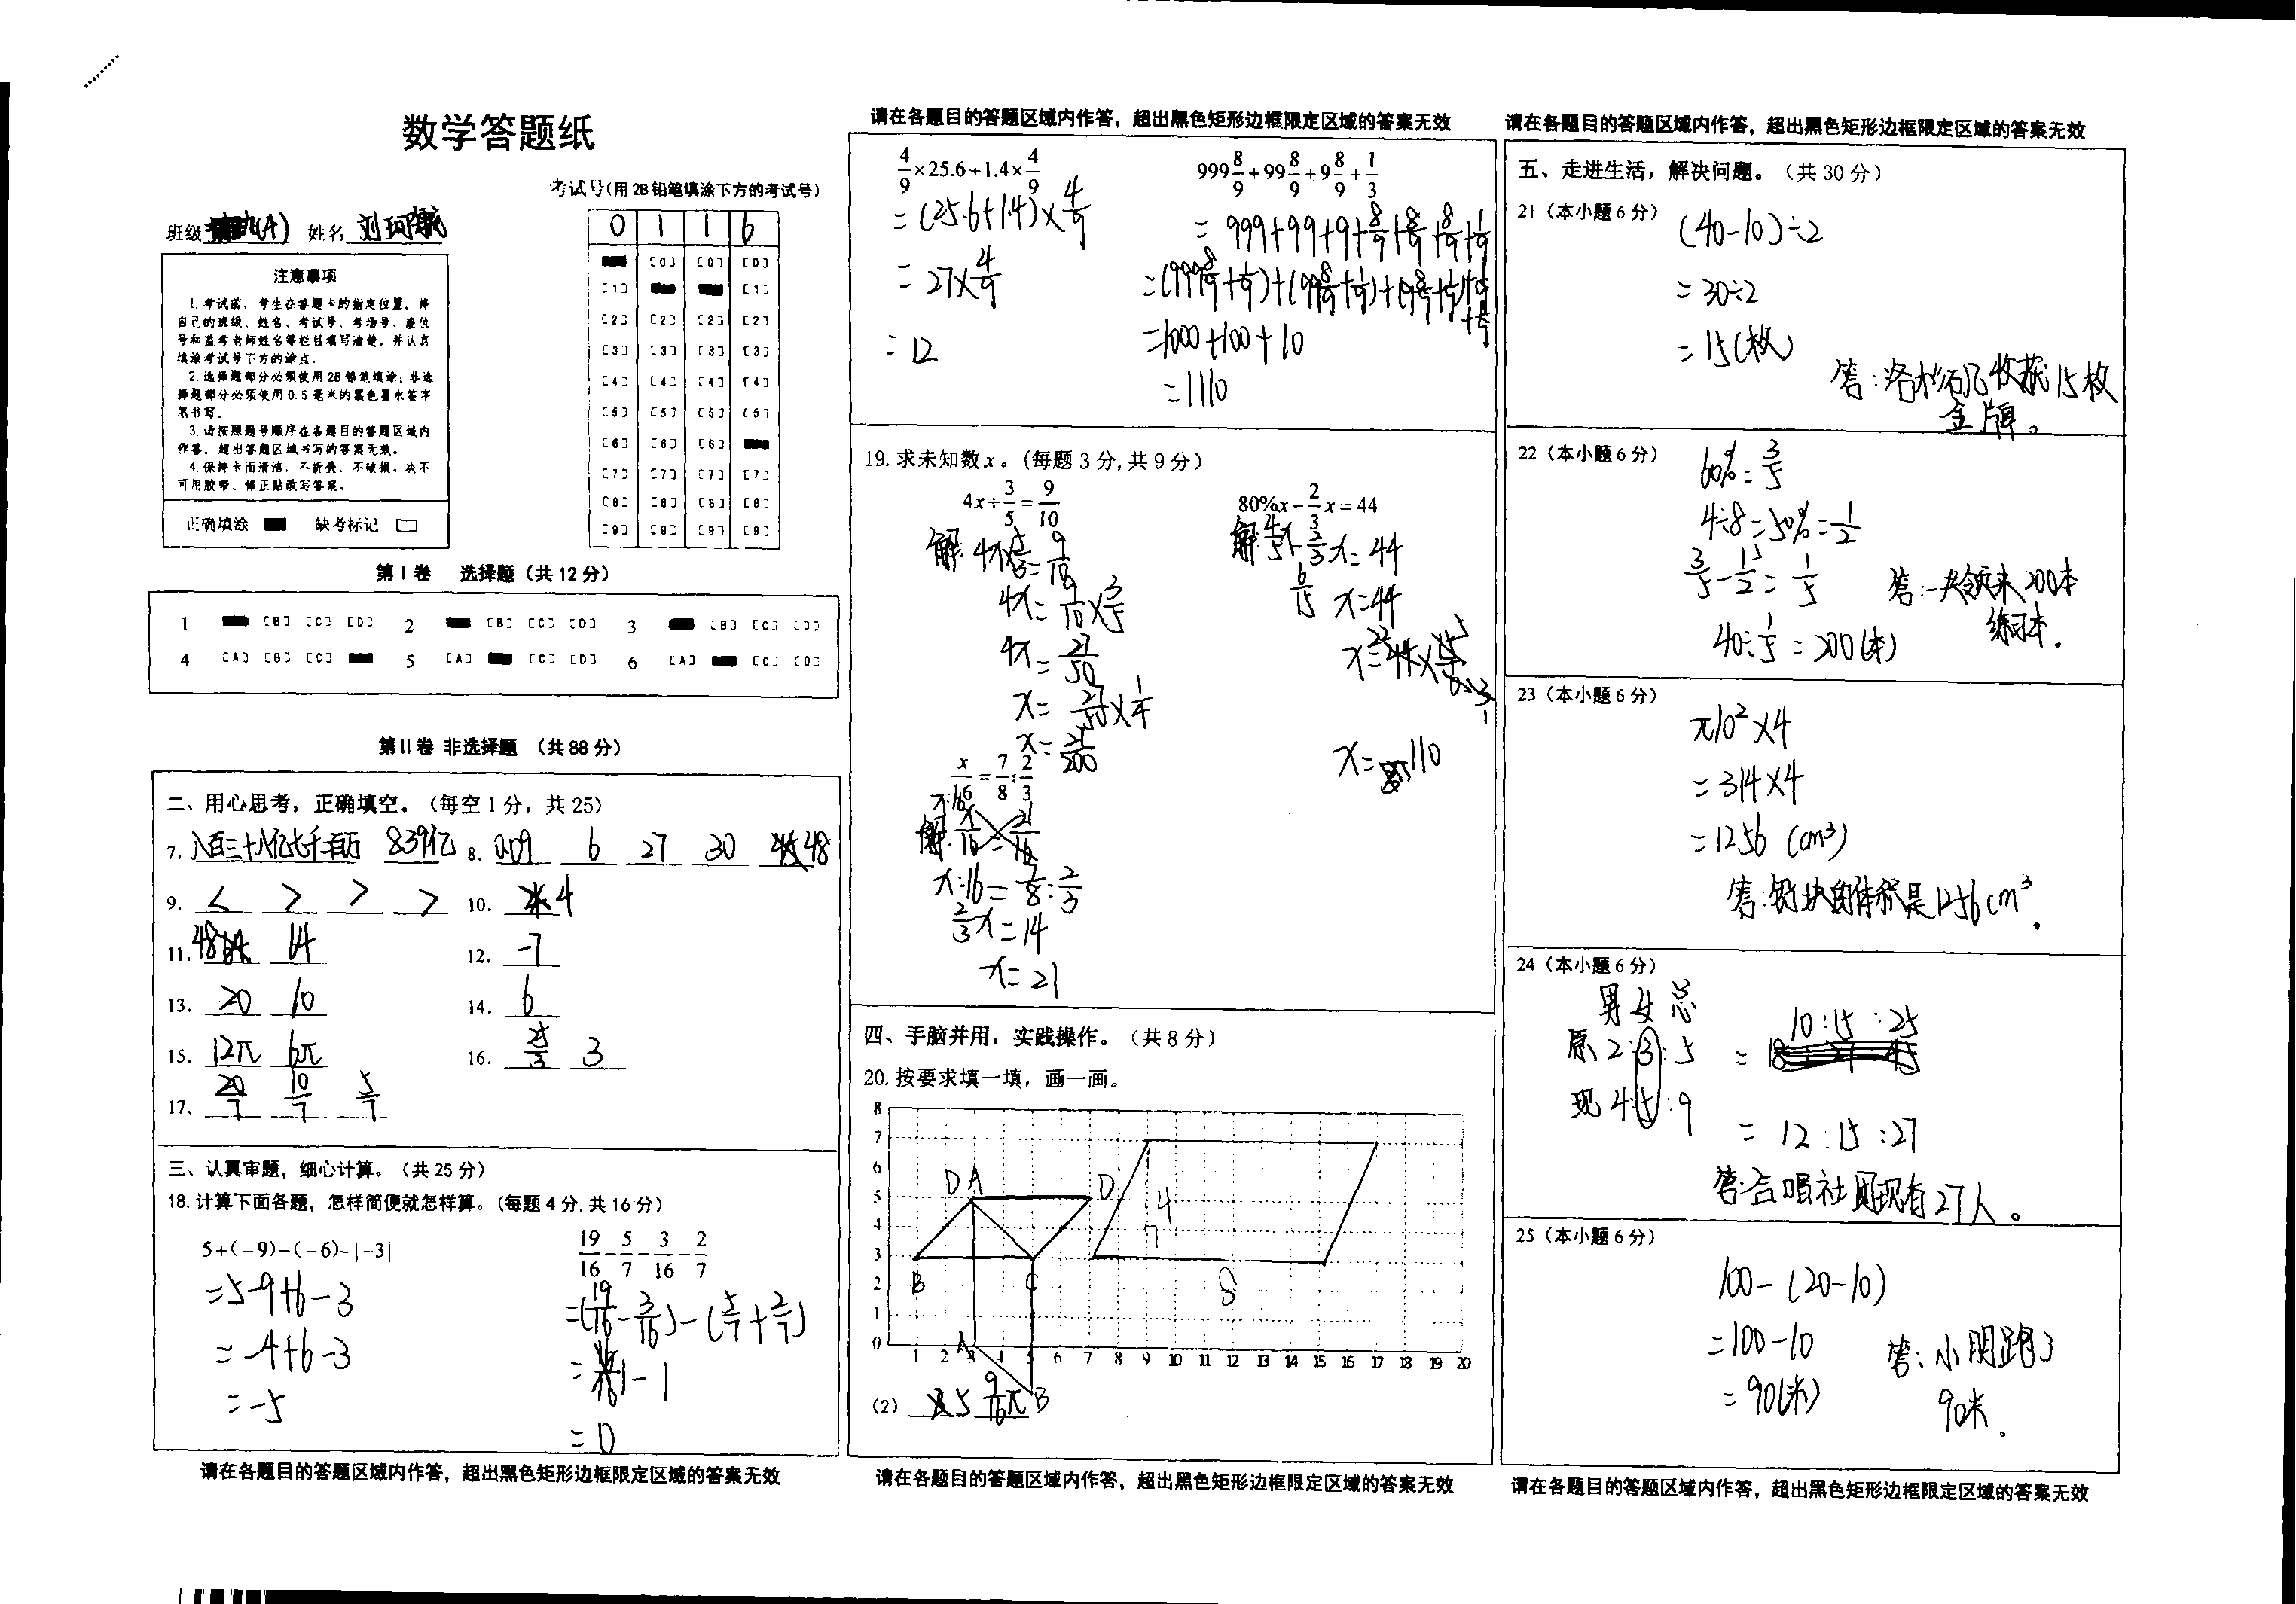 数学答题纸
考试号(用2B铅笔填涂下方的考试号)
班级 九(4) 姓名 刘珂航
0 1 1 6
注意事项
1.考试前,考生在答题卡的指定位置,将
自己的班级、姓名、考试号、考场号、座位
号和监考老师姓名等栏目填写清楚,并认真
填涂考试号下方的涂点。
2.选择题部分必须使用2B铅笔填涂;非选
择题部分必须使用0.5毫米的黑色墨水签字
笔书写。
3.请按照题号顺序在各题目的答题区域内
作答,超出答题区域书写的答案无效。
4.保持卡面清洁,不折叠、不破损。决不
可用胶带、修正贴改写答案。
正确填涂 缺考标记
[0] [0] [0]
[1] [1]
[2] [2] [2] [2]
[3] [3] [3] [3]
[4] [4] [4] [4]
[5] [5] [5] [5]
[6] [6] [6]
[7] [7] [7] [7]
[8] [8] [8] [8]
[9] [9] [9] [9]
第Ⅰ卷 选择题(共12分)
1 [B] [C] [D] 2 [B] [C] [D] 3 [B] [C] [D]
4 [A] [B] [C] 5 [A] [C] [D] 6 [A] [C] [D]
第Ⅱ卷 非选择题 (共88分)
二、用心思考,正确填空。(每空1分,共25)
7. 八百三十八亿七千百万 839亿 8. 0.09 6 27 30 48
9. < > > > 10. 4
11. 48 14 12. -7
13. 20 10 14. 6
15. 12π 6π 16. 25/3 3
17. 20/7 10/7 5/7
三、认真审题,细心计算。(共25分)
18.计算下面各题,怎样简便就怎样算。(每题4分,共16分)
5+(-9)-(-6)-|-3|
=5-9+6-3
=-4+6-3
=-5
19/16-5/7-3/16-2/7
=(19/16-3/16)-(5/7+2/7)
-1
=0
请在各题目的答题区域内作答,超出黑色矩形边框限定区域的答案无效
请在各题目的答题区域内作答,超出黑色矩形边框限定区域的答案无效
4/9×25.6+1.4×4/9
=(25.6+1.4)×4/9
=27×4/9
=12
999 8/9+99 8/9+9 8/9+1/3
=999+99+9+8/9+8/9+8/9+1/9
=(999 8/9+1/9)+(99 8/9+1/9)+(9 8/9+1/9)
=1000+100+10
=1110
19.求未知数x。(每题3分,共9分)
4x÷3/5=9/10
解:4x×5/3=9/10
4x=9/10×3/5
4x=27/50
x=27/50×1/4
x=27/200
80%x-2/3x=44
解:4/5x-2/3x=44
6/15 x=44
x=44×15/6
x=110
x/16=7/8:2/3
x:16
解:
x:16=7/8:2/3
2/3x=14
x=21
四、手脑并用,实践操作。(共8分)
20.按要求填一填,画一画。
8
7
6
5
4
3
2
1
0
1 2 3 4 5 6 7 8 9 10 11 12 13 14 15 16 17 18 19 20
D A D
B C
4
8
A
B
(2) 5 9/16π
请在各题目的答题区域内作答,超出黑色矩形边框限定区域的答案无效
请在各题目的答题区域内作答,超出黑色矩形边框限定区域的答案无效
五、走进生活,解决问题。(共30分)
21(本小题6分)
(40-10)÷2
=30÷2
=15(枚)
答:洛杉矶收获15枚
金牌。
22(本小题6分)
60%=3/5
4÷8=50%=1/2
3/5-1/2=1/5
40÷1/5=200(本)
答:一共领来200本
练习本.
23(本小题6分)
π10²×4
=314×4
=1256 (cm³)
答:铁块的体积是1256cm³.
24(本小题6分)
男 女 总
原 2:3:5 = 10:15:25
现 4:5:9
=12:15:27
答:合唱社团现有27人。
25(本小题6分)
100-(20-10)
=100-10
=90(米)
答:小明跑了
90米.
请在各题目的答题区域内作答,超出黑色矩形边框限定区域的答案无效